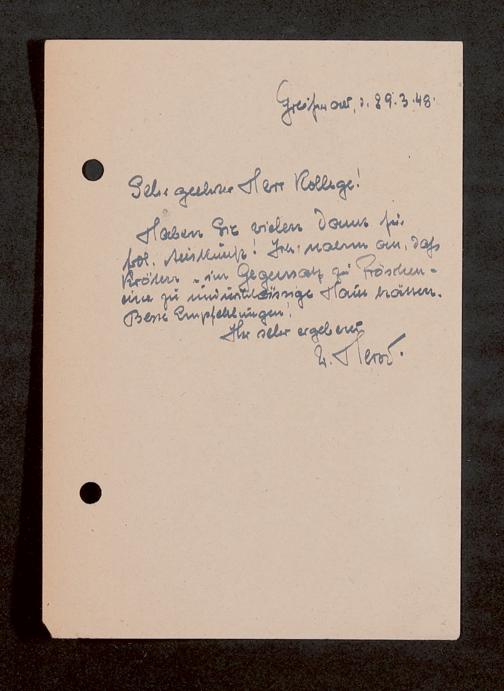 d. 29.3.48.
Sehr geehrter Herr Kollege!
Haben Sie vielen Dank für
frdl. Auskunft! Ich nahm an, daß
Kröten - im Gegensatz zu Fröschen -
eine zu undurchlässige Haut hätten.
Beste Empfehlungen!
Ihr sehr ergebener
W. Herre.